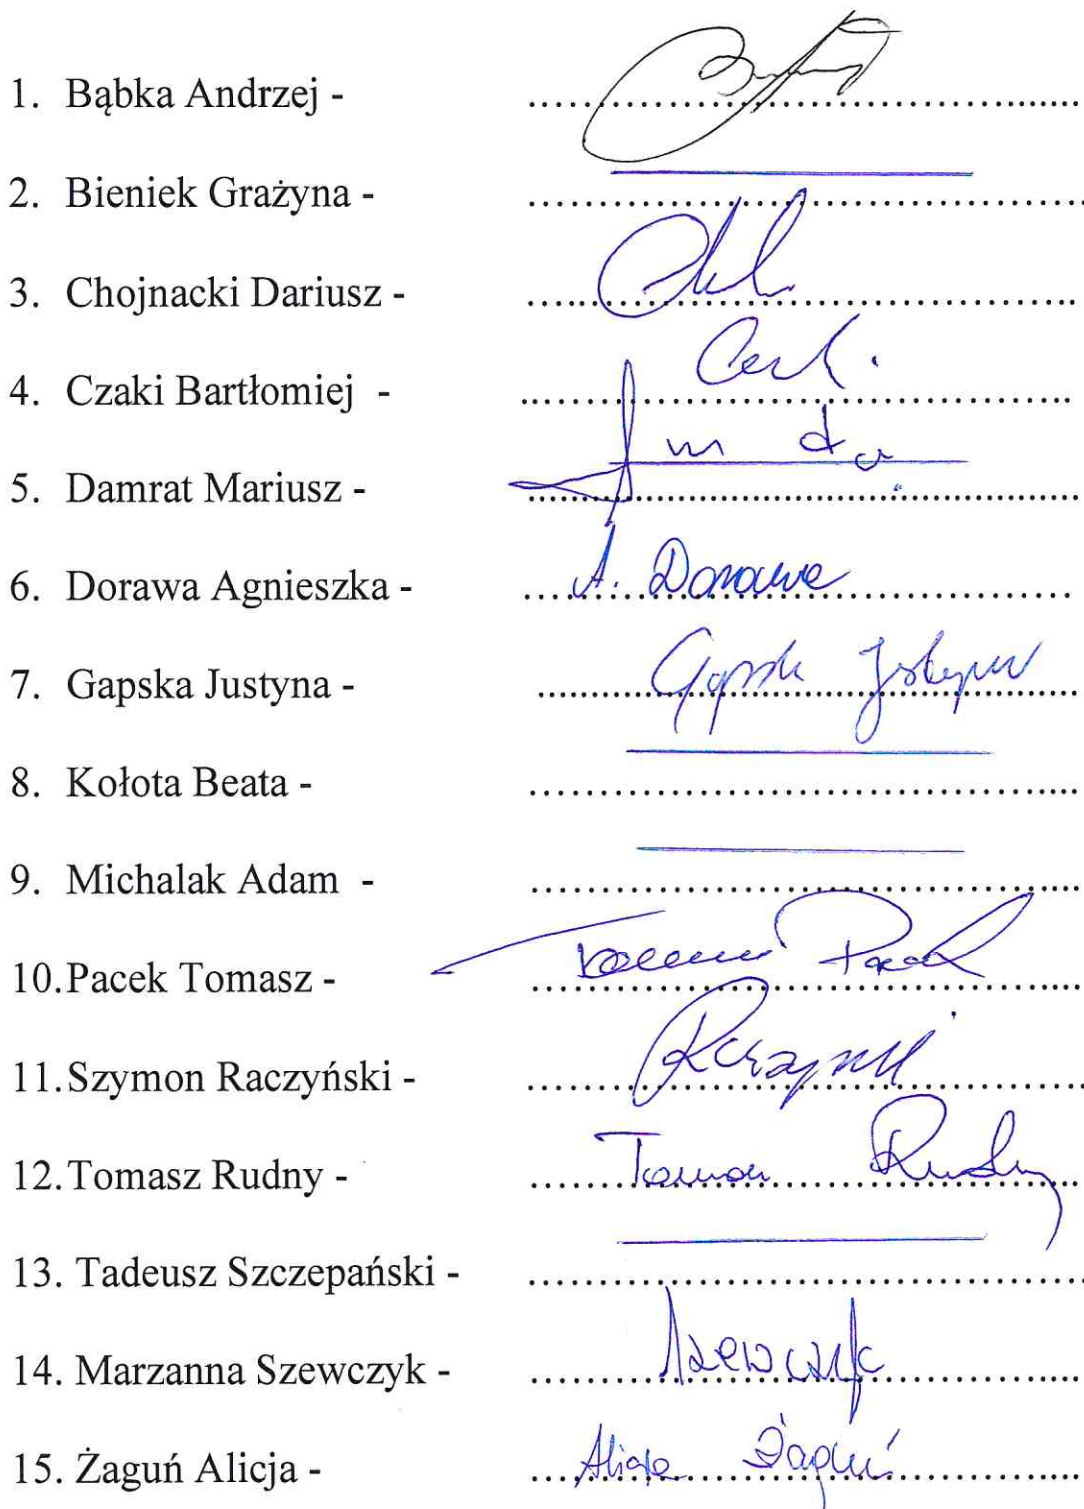 1. Bąbka Andrzej - ........................................
2. Bieniek Grażyna - ........................................
3. Chojnacki Dariusz - ........................................
4. Czaki Bartłomiej - ........................................
5. Damrat Mariusz - ........................................
6. Dorawa Agnieszka - A. Dorawa
7. Gapska Justyna - Gapska Justyna
8. Kołota Beata - ........................................
9. Michalak Adam - ........................................
10. Pacek Tomasz - Tomasz Pacek
11. Szymon Raczyński - ........................................
12. Tomasz Rudny - Tomasz Rudny
13. Tadeusz Szczepański - ........................................
14. Marzanna Szewczyk - Szewczyk
15. Żaguń Alicja - Alicja Żaguń